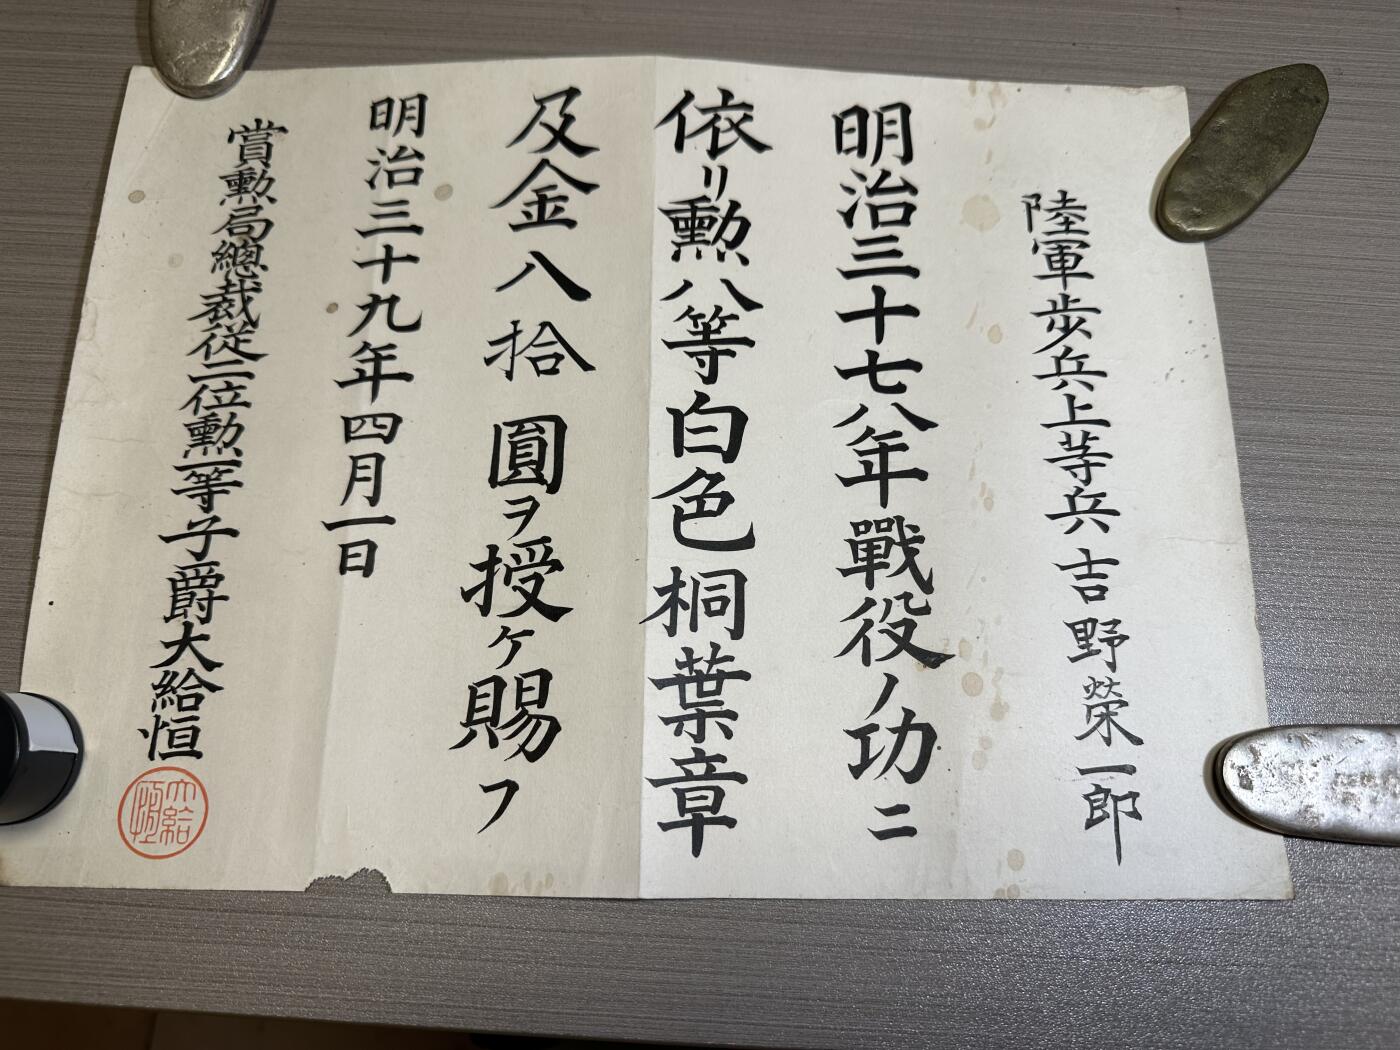 陸軍歩兵上等兵吉野榮一郎
明治三十七八年戰役ノ功ニ
依リ勲八等白色桐葉章
及金八拾圓ヲ授ケ賜フ
明治三十九年四月一日
賞勲局總裁從二位勲一等子爵大給恒
大給恒